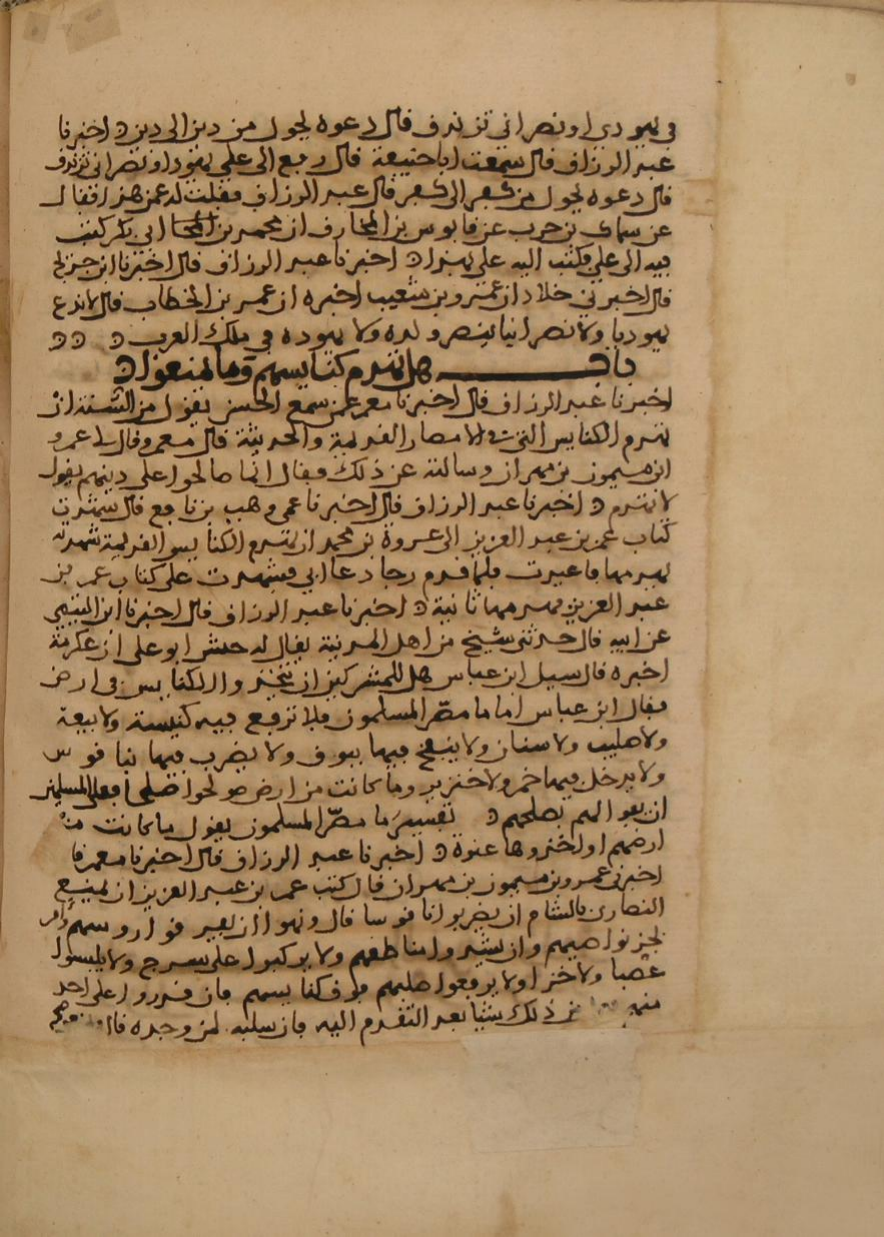 في يهودي او نصراني تزندق قال دعوه يحول من دين الى دين اخبرنا
عبد الرزاق قال سمعت ابا حنيفة قال رفع الى علي يهودي او نصراني تزندق
قال دعوه يحول من كفر الى كفر قال عبد الرزاق فقلت له عمن هذا فقال
عن سماك بن حرب عن قابوس بن المخارق ان محمد بن ابي بكر كتب
فيه الى علي فكتب اليه علي بهذا اخبرنا عبد الرزاق قال اخبرنا ابن جريج
قال اخبرني خلاد ان عمرو بن شعيب اخبره ان عمر بن الخطاب قال لا ندع
يهوديا ولا نصرانيا ينصر ولده ولا يهوده في ملك العرب
باب هل تهدم كنايسهم وما يمنعوا
اخبرنا عبد الرزاق قال اخبرنا معمر عمن سمع الحسن يقول من السنة ان
تهدم الكنايس التي في الامصار القديمة والحديثة قال معمر وقال لا عمرو
ابن ميمون بن مهران وسالته عن ذلك فقال انما صالحوا على دينهم يقول
لا تهدم اخبرنا عبد الرزاق قال اخبرنا عمي وهب بن نافع قال شهدت
كتاب عمر بن عبد العزيز الى عروة بن محمد ان يهدم الكنايس القديمة شهدته
يهدمها فاعيدت فلما قدم رجا دعا ابي فشهدت على كتاب عمر بن
عبد العزيز فهدمها ثانية اخبرنا عبد الرزاق قال اخبرنا ابن التيمي
عن ابيه قال حدثني شيخ من اهل المدينة يقال له حنش ابو علي ان عكرمة
اخبره قال سيل ابن عباس هل للمشركين ان يتخذوا الكنايس في ارض
فقال ابن عباس اما ما مصر المسلمون فلا ترفع فيه كنيسة ولا بيعة
ولا صليب ولا سنان ولا ينفخ فيها ببوق ولا يضرب فيها بناقوس
ولا يدخل فيها خمر ولا خنزير وما كانت من ارض صولحوا صلحا فعلى المسلمين
ان يفوا لهم بصلحهم تفسير ما مصر المسلمون يقول ما كانت من
ارضهم او اخذوها عنوة اخبرنا عبد الرزاق قال اخبرنا معمر قال
اخبرني عمرو بن ميمون بن مهران قال كتب عمر بن عبد العزيز ان يمنع
النصارى بالشام ان يضربوا ناقوسا قال ونهوا ان يفرقوا روسهم وامر
بجز نواصيهم وان يشدوا مناطقهم ولا يركبوا على سرج ولا يلبسوا
عصبا ولا خزا ولا يرفعوا صلبهم فوق كنايسهم فان قدروا على احد
منهم من ذلك شيا بعد التقدم اليه فان سلبه لمن وجده قال